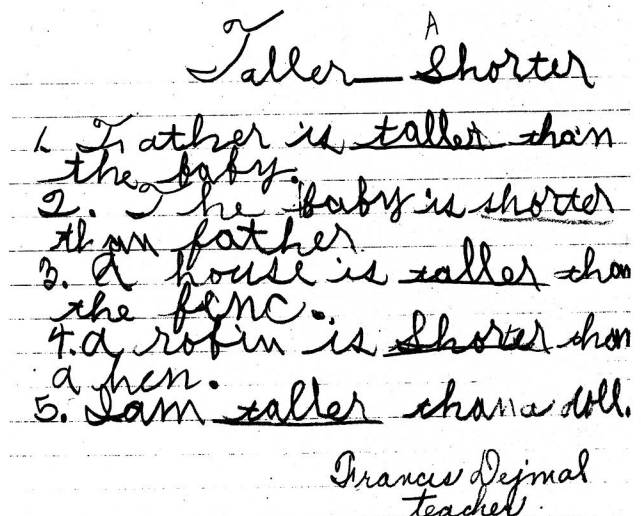 A
Taller Shorter
1. Father is taller than
the baby.
2. The baby is shorter
than father
3. A house is taller than
the fenc.
4. a robin is Shorter than
a hen.
5. I am taller than a doll.
Francis Dejmal
teacher